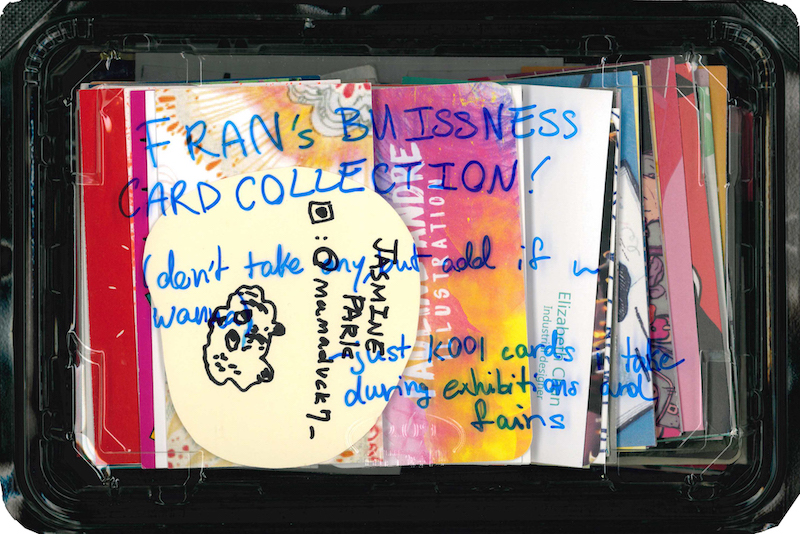 FRAN's BUISSNESS
CARD COLLECTION!
(don't take any, but add if u
wanna)
- just KOOl cards i take
during exhibitions and
fairs
JASMINE
PARK
: @mamaduck7_
ILLUSTRATION
Elizabeth Chan
Industrial designer